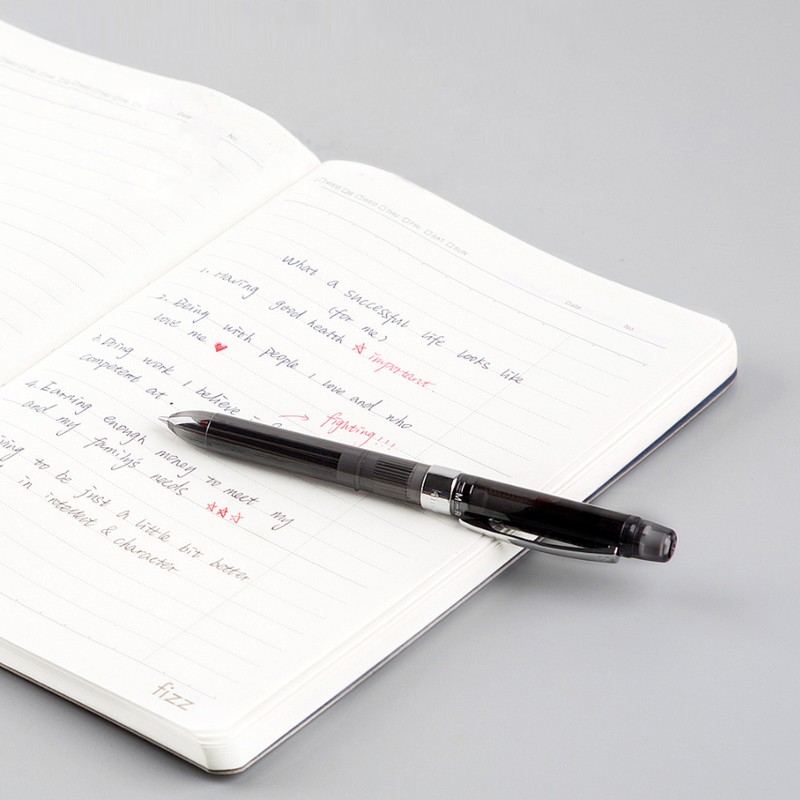 Date
No.
MON TUE WED THU FRI SAT SUN
Date
No.
What a successful life looks like
(for me)
1. Having good health ☆ important
2. Being with people I love and who
love me ♥
3. Doing work I believe in
competent at. fighting!!!
4. Earning enough money to meet my
and my family's needs ☆☆☆
to be just a little bit better
in intellect & character
fizz